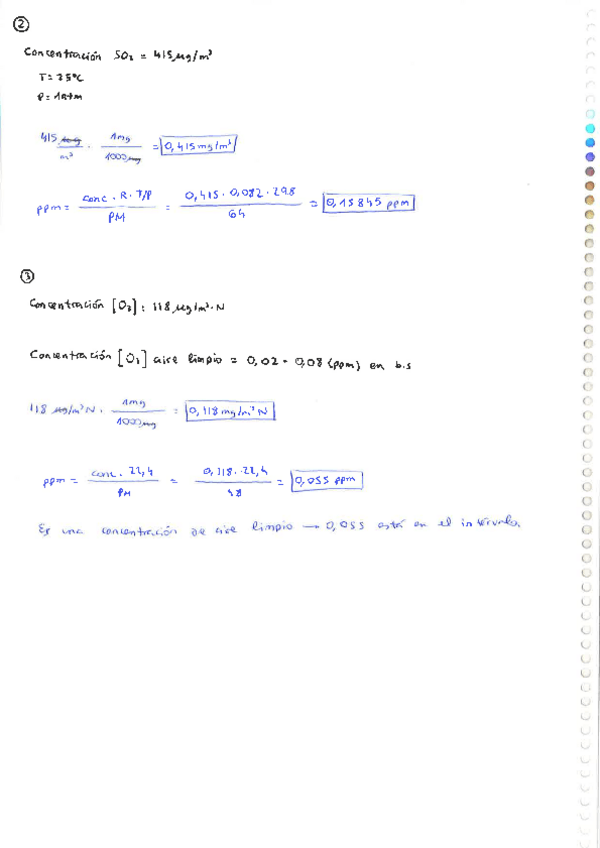 ②
Concentración SO₂ = 415 µg/m³
T = 25°C
P = 1 atm
415 µg/m³ · 1mg/1000 µg = 0,415 mg/m³
ppm = conc · R · T/P / PM = 0,415 · 0,082 · 298 / 64 = 0,15845 ppm
③
Concentración [O₃]: 118 µg/m³·N
Concentración [O₃] aire limpio = 0,02 - 0,08 (ppm) en b.s
118 µg/m³N · 1mg/1000 µg = 0,118 mg/m³N
ppm = conc · 22,4 / PM = 0,118 · 22,4 / 48 = 0,055 ppm
Es una concentración de aire limpio → 0,055 está en el intervalo.